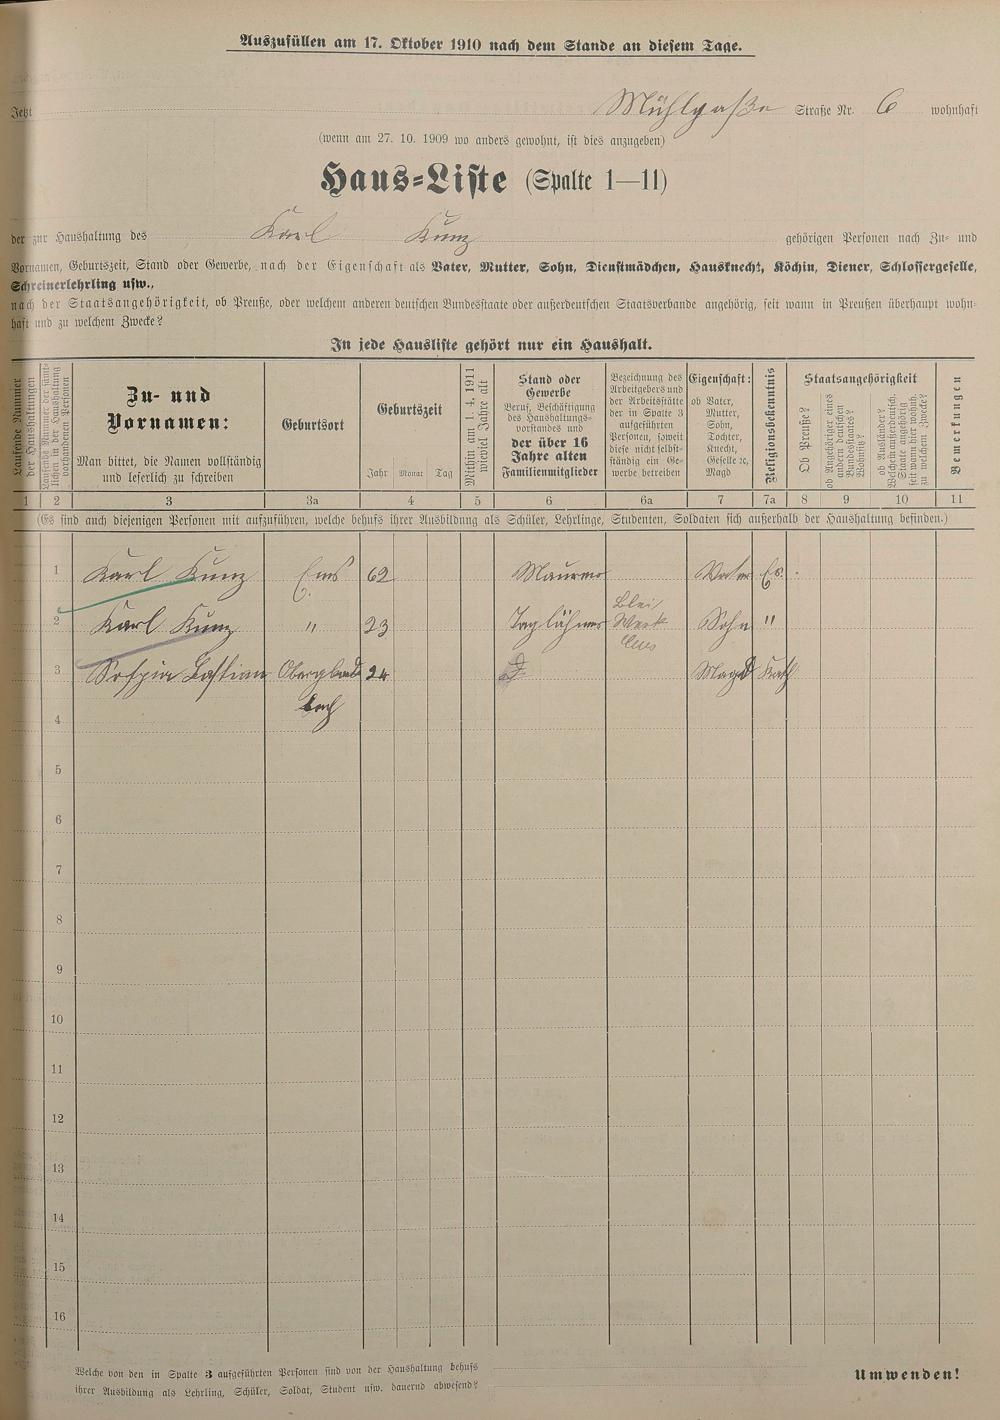 Auszufüllen am 17. Oktober 1910 nach dem Stande an diesem Tage.
Jetzt Mühlgaße Straße Nr. 6 wohnhaft
(wenn am 27. 10. 1909 wo anders gewohnt, ist dies anzugeben)
Haus-Liste (Spalte 1—11)
der zur Haushaltung des Karl Kunz gehörigen Personen nach Zu- und
Vornamen, Geburtszeit, Stand oder Gewerbe, nach der Eigenschaft als Vater, Mutter, Sohn, Dienstmädchen, Hausknecht, Köchin, Diener, Schlossergeselle,
Schreinerlehrling usw.,
nach der Staatsangehörigkeit, ob Preuße, oder welchem anderen deutschen Bundesstaate oder außerdeutschen Staatsverbande angehörig, seit wann in Preußen überhaupt wohn-
haft und zu welchem Zwecke?
In jede Hausliste gehört nur ein Haushalt.
Laufende Nummer
der Haushaltungen
Laufende Nummer der sämt-
lichen in der Haushaltung
vorhandenen Personen
Zu- und
Vornamen:
Man bittet, die Namen vollständig
und leserlich zu schreiben
Geburtsort
Geburtszeit
Jahr Monat Tag
Mithin am 1. 4. 1911
wieviel Jahre alt
Stand oder
Gewerbe
Beruf, Beschäftigung
des Haushaltungs-
vorstandes und
der über 16
Jahre alten
Familienmitglieder
Bezeichnung des
Arbeitgebers und
der Arbeitsstätte
der in Spalte 3
aufgeführten
Personen, soweit
diese nicht selbst-
ständig ein Ge-
werbe betreiben
Eigenschaft:
ob Vater,
Mutter,
Sohn,
Tochter,
Knecht,
Geselle ec,
Magd
Religionsbekenntnis
Staatsangehörigkeit
Ob Preuße?
ob Angehöriger eines
andern deutschen
Bundesstaates?
Wohnsitz?
ob Ausländer?
Welchem außerdeutsch.
Staate angehörig
seit wann hier wohnh.
zu welchem Zwecke?
Bemerkungen
1 2 3 3a 4 5 6 6a 7 7a 8 9 10 11
(Es sind auch diejenigen Personen mit aufzuführen, welche behufs ihrer Ausbildung als Schüler, Lehrlinge, Studenten, Soldaten sich außerhalb der Haushaltung befinden.)
1 Karl Kunz Ems 62 Maurer Vater Ev.
2 Karl Kunz " 23 Taglöhner Blei Werk Ems Sohn "
3 Bastian 24 Magd Kath
4
5
6
7
8
9
10
11
12
13
14
15
16
Welche von den in Spalte 3 aufgeführten Personen sind von der Haushaltung behufs
ihrer Ausbildung als Lehrling, Schüler, Soldat, Student usw. dauernd abwesend?
Umwenden!